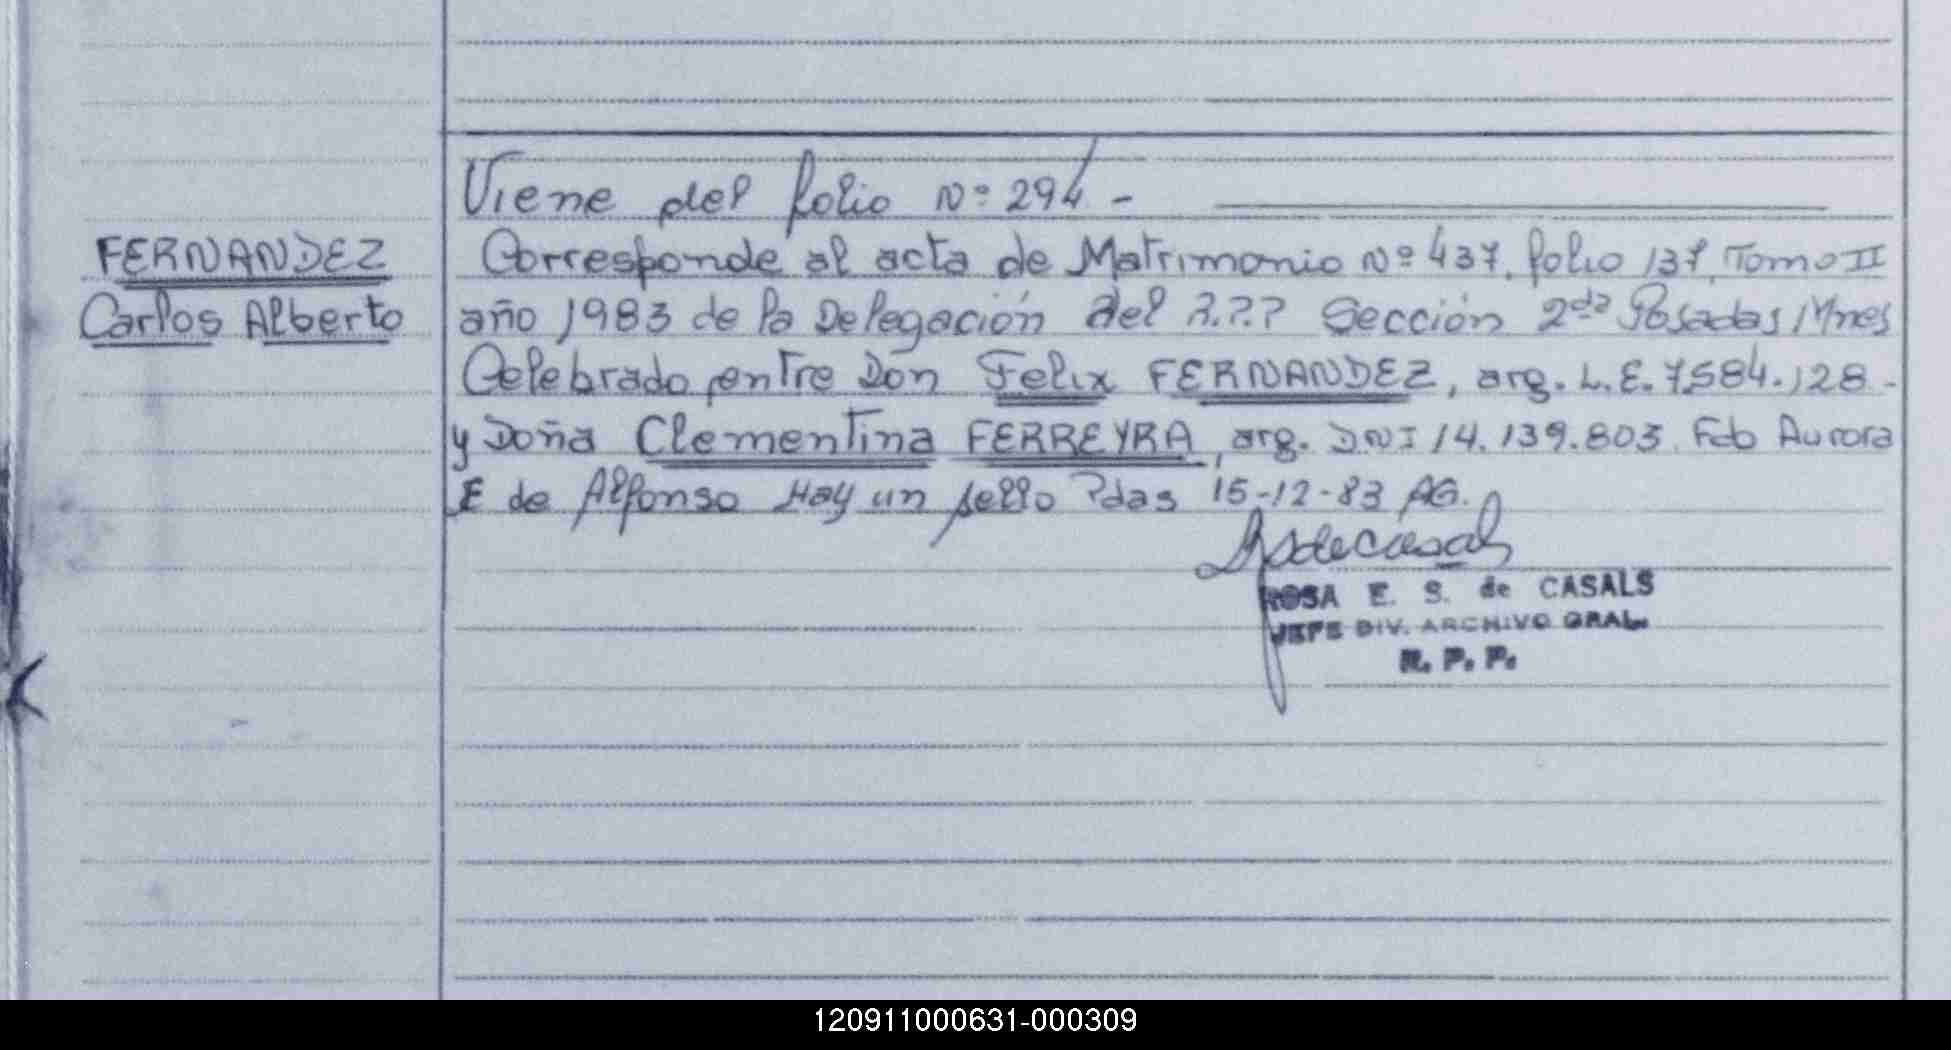 Viene del folio Nº 294 -
FERNANDEZ
Carlos Alberto
Corresponde al acta de Matrimonio Nº 437, folio 137, Tomo II
año 1983 de la Delegación del R.P.P Sección 2da Posadas Mnes
Celebrado entre Don Felix FERNANDEZ, arg. L.E. 7.584.128 -
y Doña Clementina FERREYRA, arg. DNI 14.139.803. Fdo Aurora
E de Alfonso Hay un sello Pdas 15-12-83 AG.
ROSA E. S. de CASALS
JEFE DIV. ARCHIVO GRAL.
R. P. P.
120911000631-000309